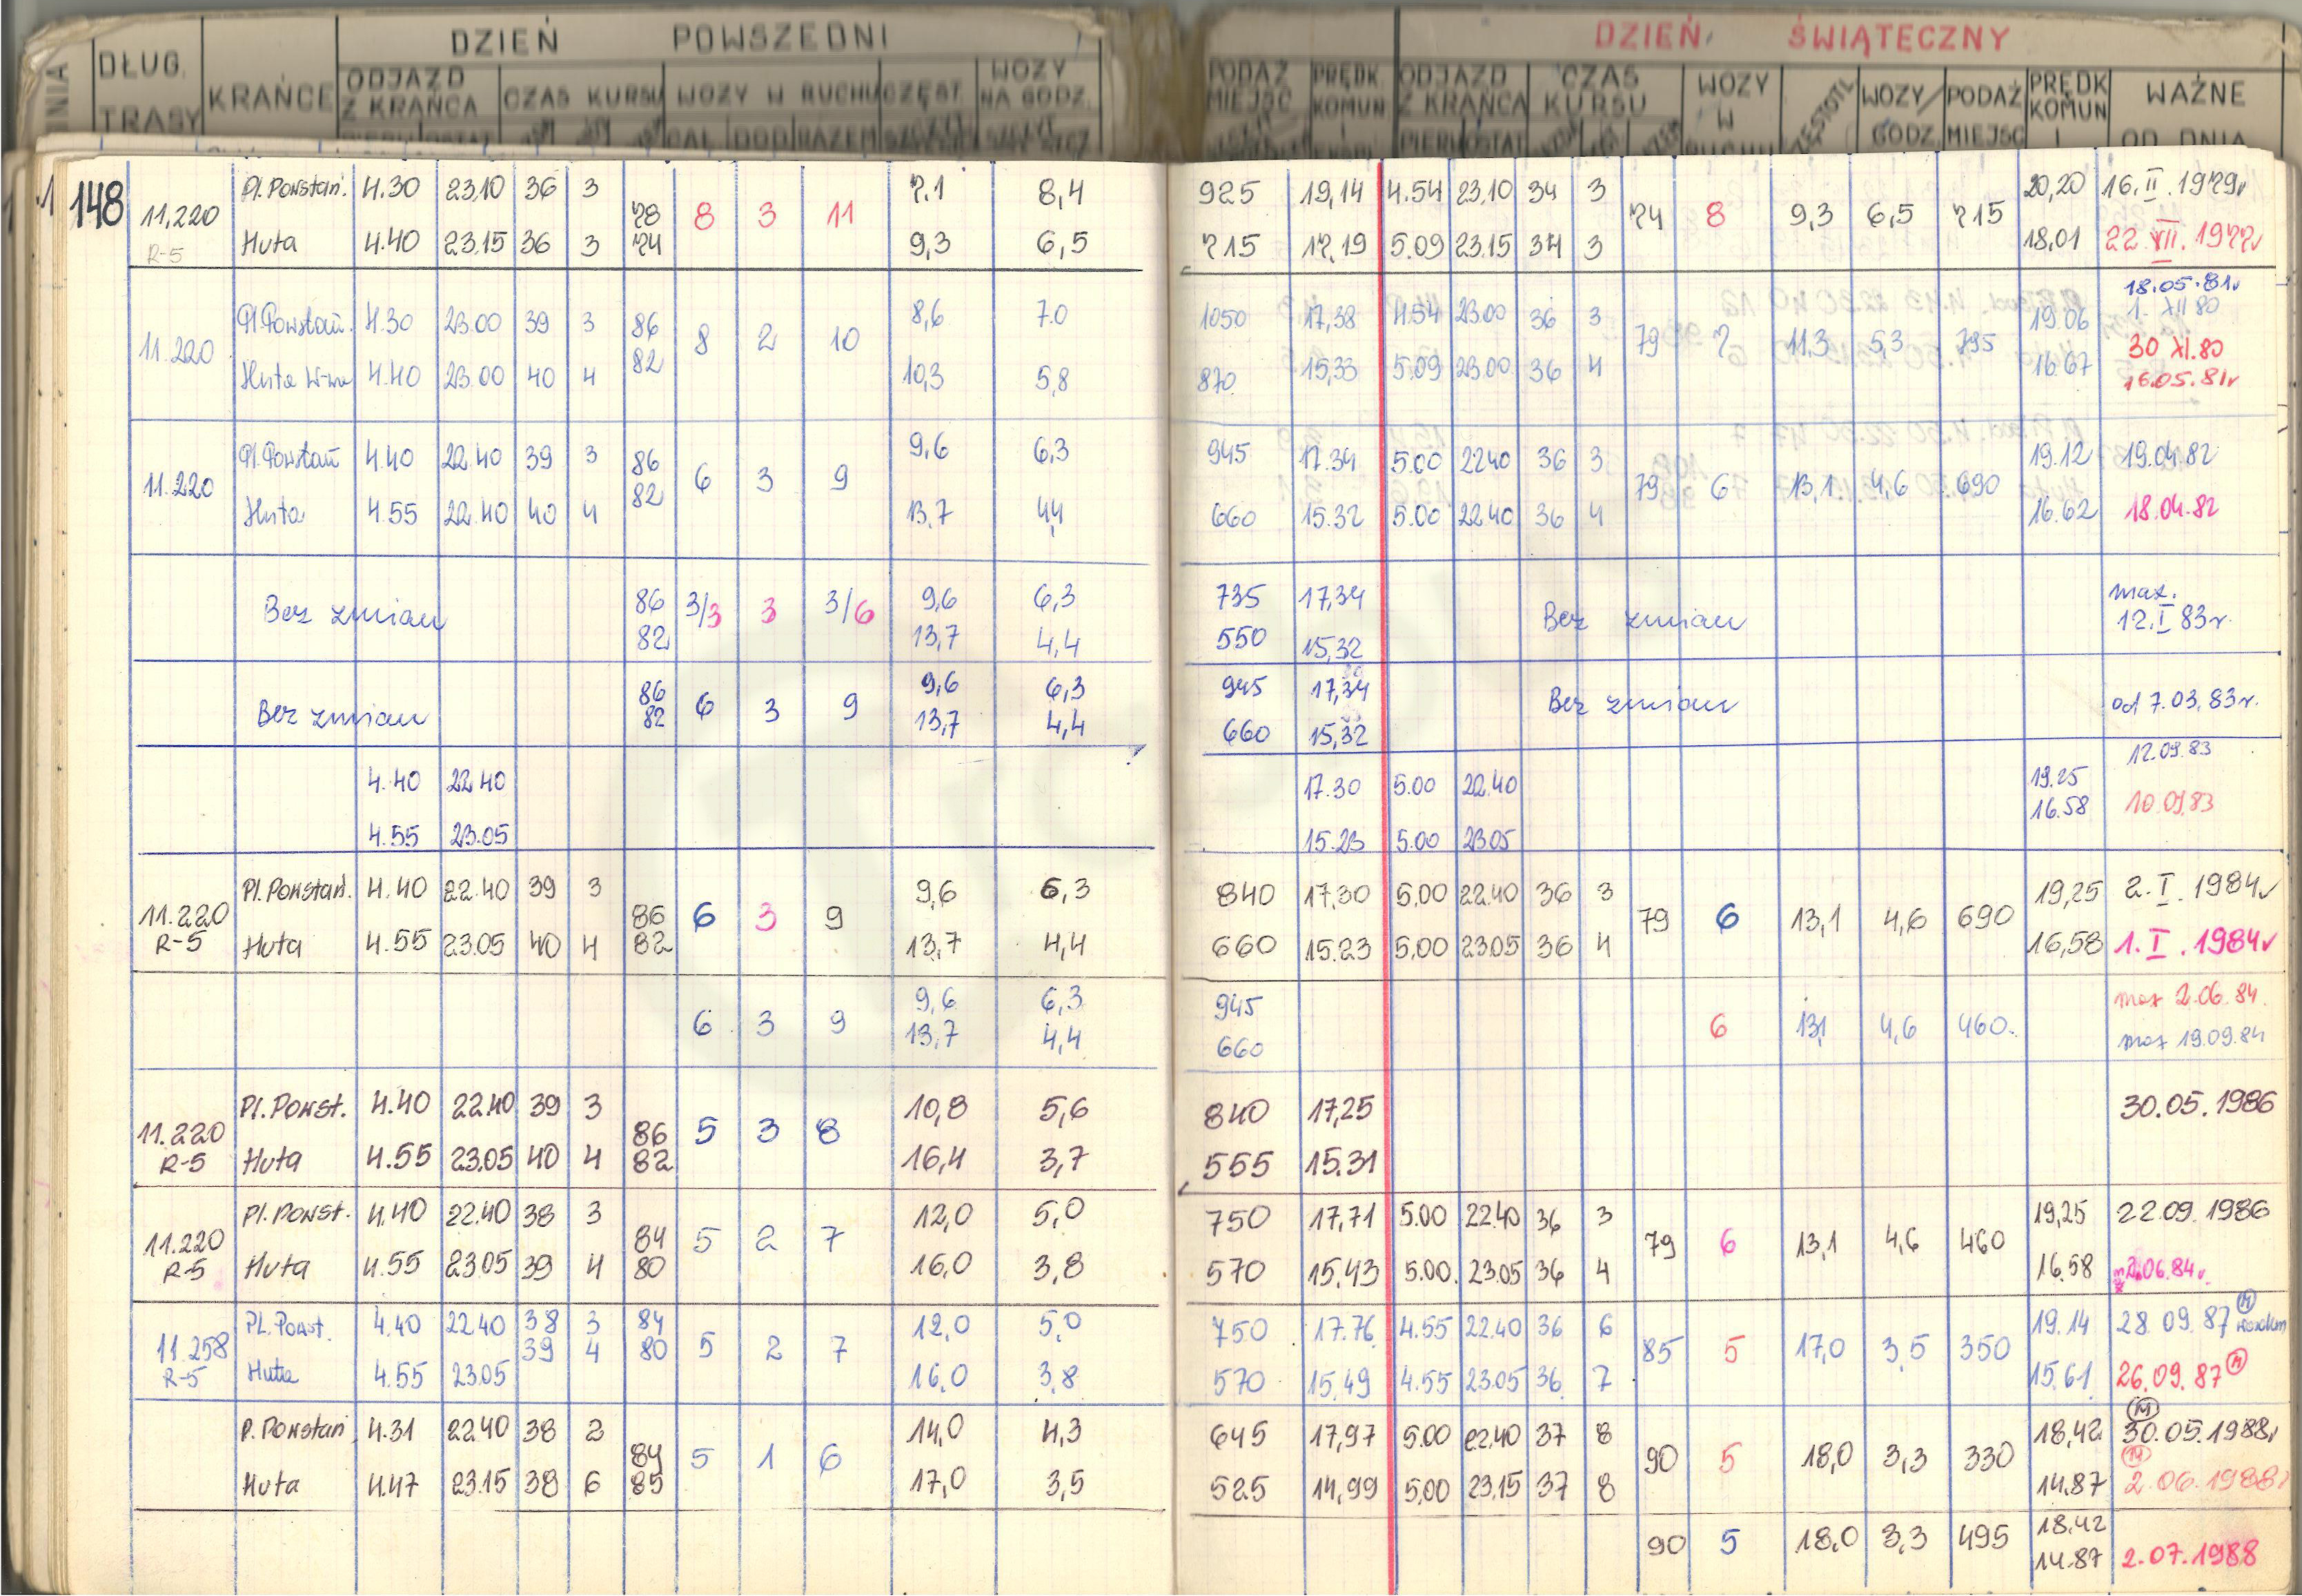 DZIEŃ POWSZEDNI DZIEŃ ŚWIĄTECZNY
DŁUG. TRASY KRAŃCE ODJAZD Z KRAŃCA CZAS KURSU WOZY W RUCHU CZĘST. WOZY NA GODZ. PODAŻ MIEJSC PRĘDK KOMUN I ODJAZD Z KRAŃCA CZAS KURSU WOZY W RUCHU WOZY/GODZ. PODAŻ MIEJSC PRĘDK KOMUN I WAŻNE OD DNIA
CAŁ DOD RAZEM
148
Pl. Powstań. 4.30 23.10 36 3 7,1 8,4 925 19,14 4.54 23.10 34 3 20,20 16.II.1979r
11,220 78 8 3 11 74 8 9,3 6,5 715
R-5 Huta 4.40 23.15 36 3 74 9,3 6,5 715 17,19 5.09 23.15 34 3 18,01 22.VII.1977r
18.05.81r
Pl. Powstań. 4.30 23.00 39 3 86 8,6 7.0 1050 17,38 4.54 23.00 36 3 19.06 1. XII 80
11.220 8 2 10 79 7 11,3 5,3 795 30 XI.80
Huta W-wa 4.40 23.00 40 4 82 10,3 5,8 870 15,33 5.09 23.00 36 4 16.67 16.05.81r
Pl. Powstań 4.40 22.40 39 3 86 9,6 6,3 945 17.34 5.00 22.40 36 3 19.12 19.04.82
11.220 82 6 3 9 79 6 13,1 4,6 690
Huta 4.55 22.40 40 4 13,7 4,4 660 15.32 5.00 22.40 36 4 16.62 18.04.82
86 3/3 3 3/6 9,6 6,3 735 17,34 max.
Bez zmian Bez zmian 12.I 83r.
82 13,7 4,4 550 15,32
86 9,6 6,3 945 17,34
Bez zmian 6 3 9 Bez zmian od 7.03.83r.
82 13,7 4,4 660 15,32
12.09.83
4.40 22.40 17.30 5.00 22.40 19.25
16.58 10.09.83
4.55 23.05 15.23 5.00 23.05
Pl. Powstań. 4.40 22.40 39 3 9,6 6,3 840 17,30 5,00 22.40 36 3 19,25 2.I.1984r
11.220 86 6 3 9 79 6 13,1 4,6 690
R-5 Huta 4.55 23.05 40 4 82 13,7 4,4 660 15.23 5,00 23.05 36 4 16,58 1.I.1984r
9,6 6,3 945 2.06.84.
6 3 9 6 13,1 4,6 460.
13,7 4,4 660 19.09.84
Pl. Powst. 4.40 22.40 39 3 10,8 5,6 840 17,25 30.05.1986
11.220 86 5 3 8
R-5 Huta 4.55 23.05 40 4 82 16,4 3,7 555 15.31
Pl. Powst. 4.40 22.40 38 3 12,0 5,0 750 17,71 5.00 22.40 36 3 19,25 22.09.1986
11.220 84 5 2 7 79 6 13,1 4,6 460
R-5 Huta 4.55 23.05 39 4 80 16,0 3,8 570 15,43 5.00. 23.05 36 4 16.58 2.06.84r.
Pl. Powst. 4.40 22.40 38 3 84 12,0 5,0 750 17.76 4.55 22.40 36 6 19.14 28.09.87 M
11.258 39 4 80 5 2 7 85 5 17,0 3,5 350
R-5 Huta 4.55 23.05 16,0 3,8 570 15,49 4.55 23.05 36 7 15.61 26.09.87 M
M
P. Powstań 4.31 22.40 38 2 14,0 4,3 645 17,97 5.00 22.40 37 8 18,42 30.05.1988r
84 5 1 6 90 5 18,0 3,3 330 M
Huta 4.47 23.15 38 6 85 17,0 3,5 525 14,99 5,00 23,15 37 8 14.87 2.06.1988r
18,42
90 5 18,0 3,3 495
14.87 2.07.1988